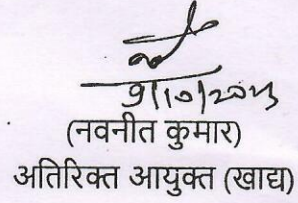 9/10/2023
(नवनीत कुमार)
अतिरिक्त आयुक्त (खाद्य)